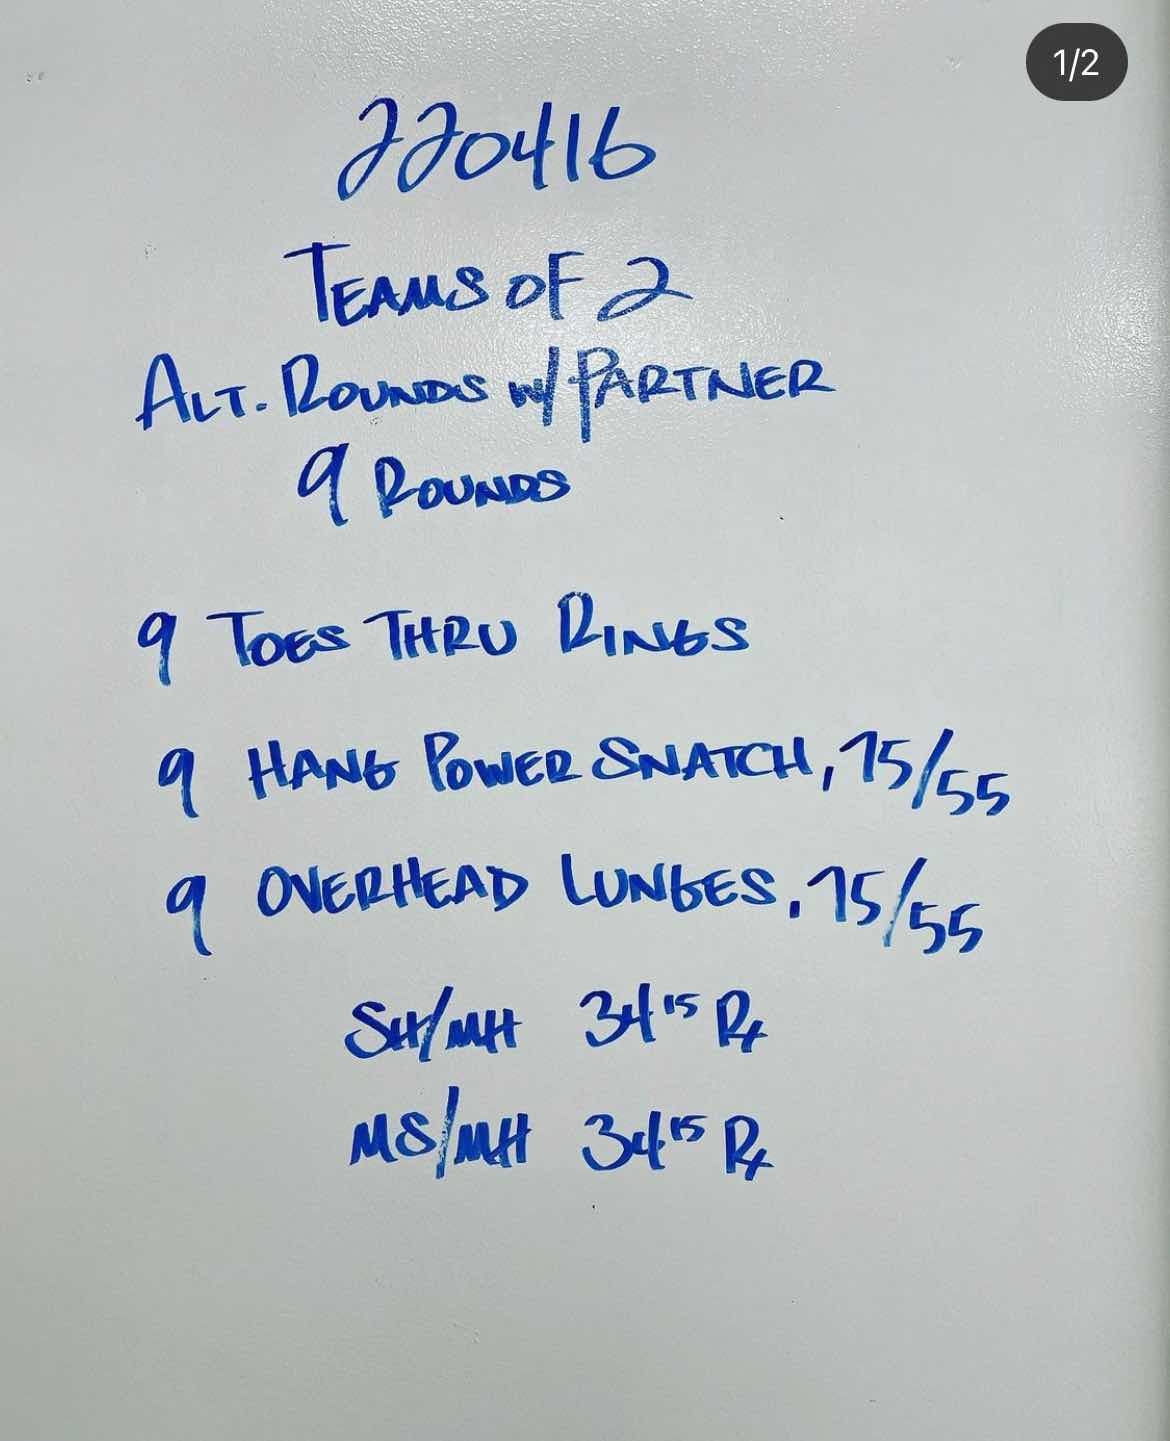 1/2
220416
TEAMS OF 2
ALT. ROUNDS w/ PARTNER
9 ROUNDS
9 TOES THRU RINGS
9 HANG POWER SNATCH, 75/55
9 OVERHEAD LUNGES, 75/55
SH/MH 34¹⁵ Rx
MS/MH 34¹⁵ Rx